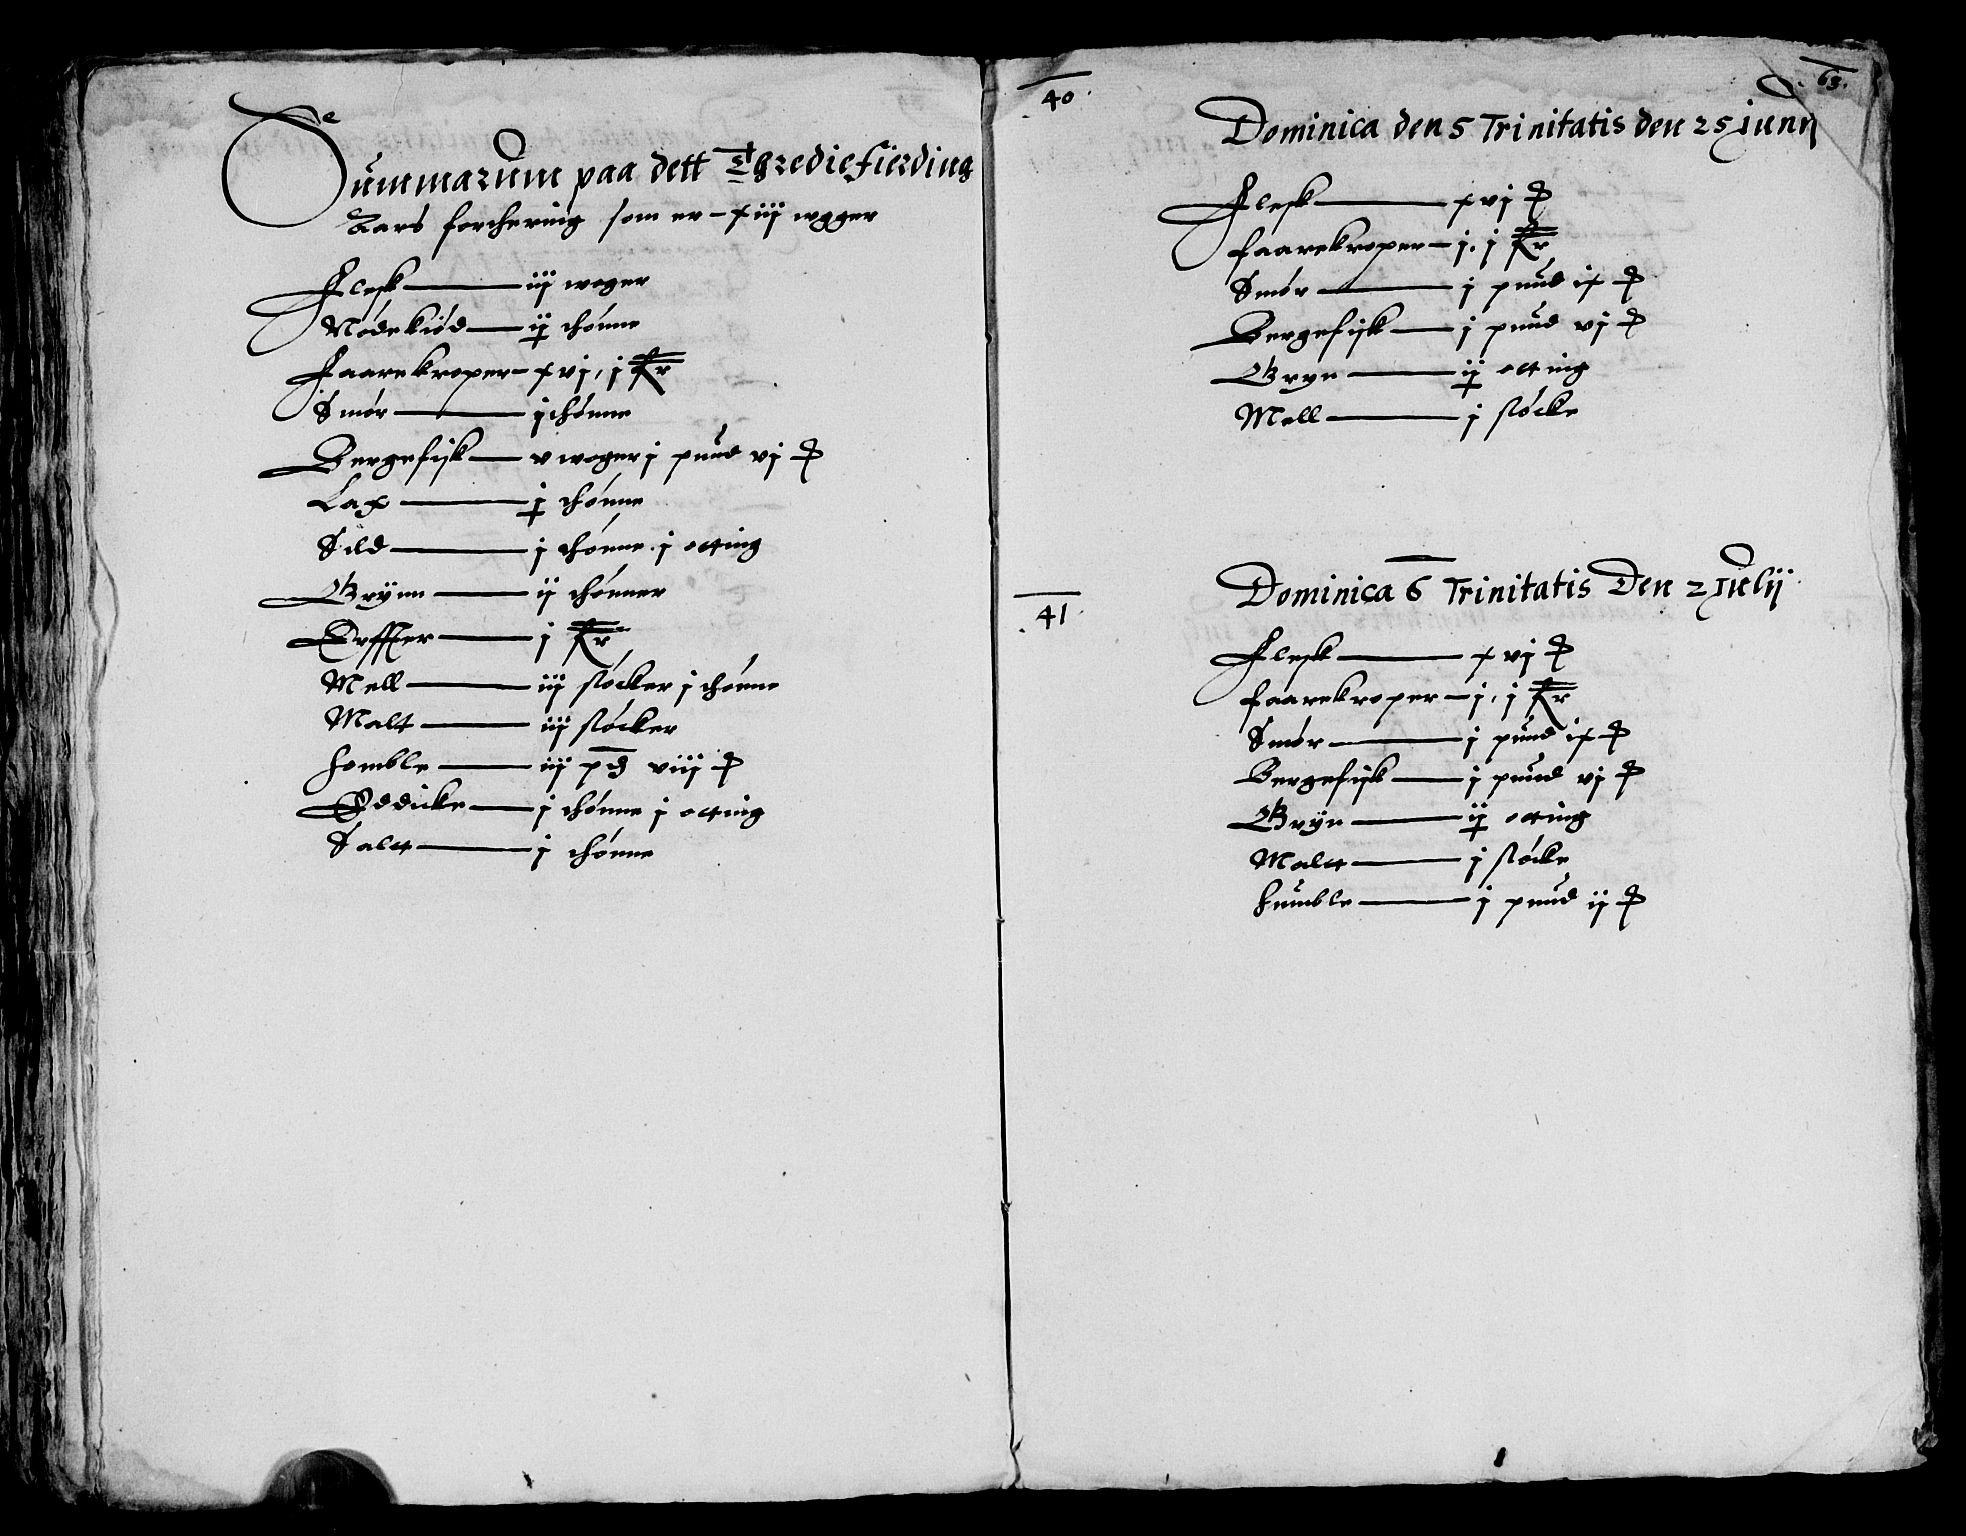 Summarum paa dett thrediefierding
Aars forthering som er xiij wgger
Flesk iij woger
Nödekiöd ij thönne
Faarekroper xvj, j kr
Smör j thönne
Bergefisk v woger j pund vj ℔
Lax j thönne
Sild j thönne j otting
Grynn ij thönner
Erffter j kr
Mell iij støcker j thönne
Malt iij støcker
Homble iij pd viij ℔
Eddicke j thönne j otting
Salt j thönne
40
63.
Dominica den 5 Trinitatis den 25 Junij
Flesk xvj ℔
faarekroper j, j kr
Smör j pund ix ℔
Bergefisk j pund vj ℔
Gryn ij otting
Mell j støcke
41
Dominica 6 Trinitatis Den 2 Julij
Flesk xvj ℔
faarekroper j, j kr
Smör j pund ix ℔
Bergefisk j pund vj ℔
Gryn ij otting
Maltt j støcke
Humble j pund ij ℔